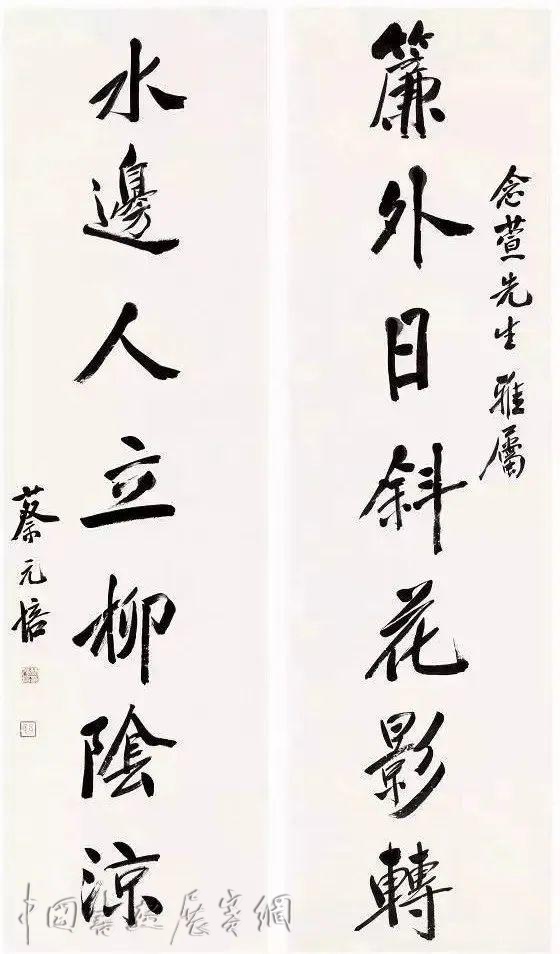 念萱先生雅屬
簾外日斜花影轉
水邊人立柳陰涼
蔡元培
中國書法展賽網